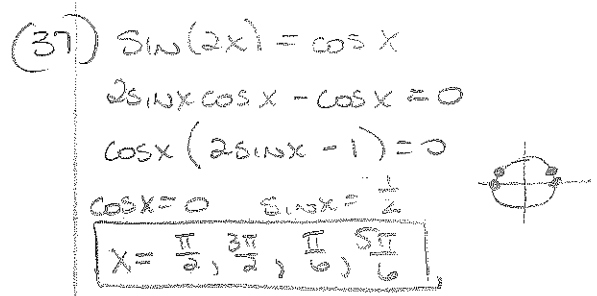 (37) sin(2x) = cos x
2sinx cosx - cosx = 0
cosx (2sinx - 1) = 0
cosx = 0 sinx = 1/2
x = π/2, 3π/2, π/6, 5π/6